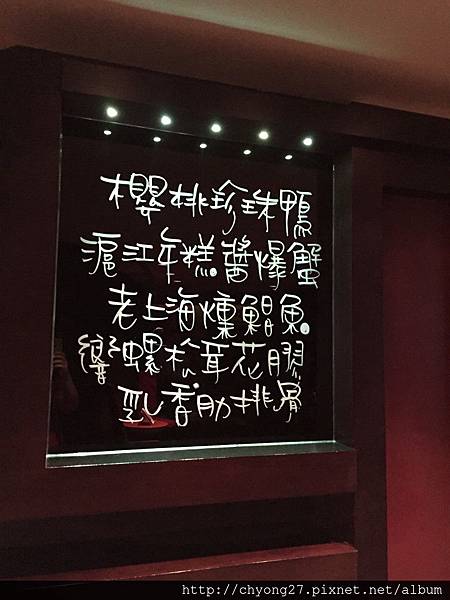 櫻桃珍珠鴨
滬江年糕醬爆蟹
老上海燻鯧魚
響螺松茸花膠
乳香肋排骨
http://chyong27.pixnet.net/album